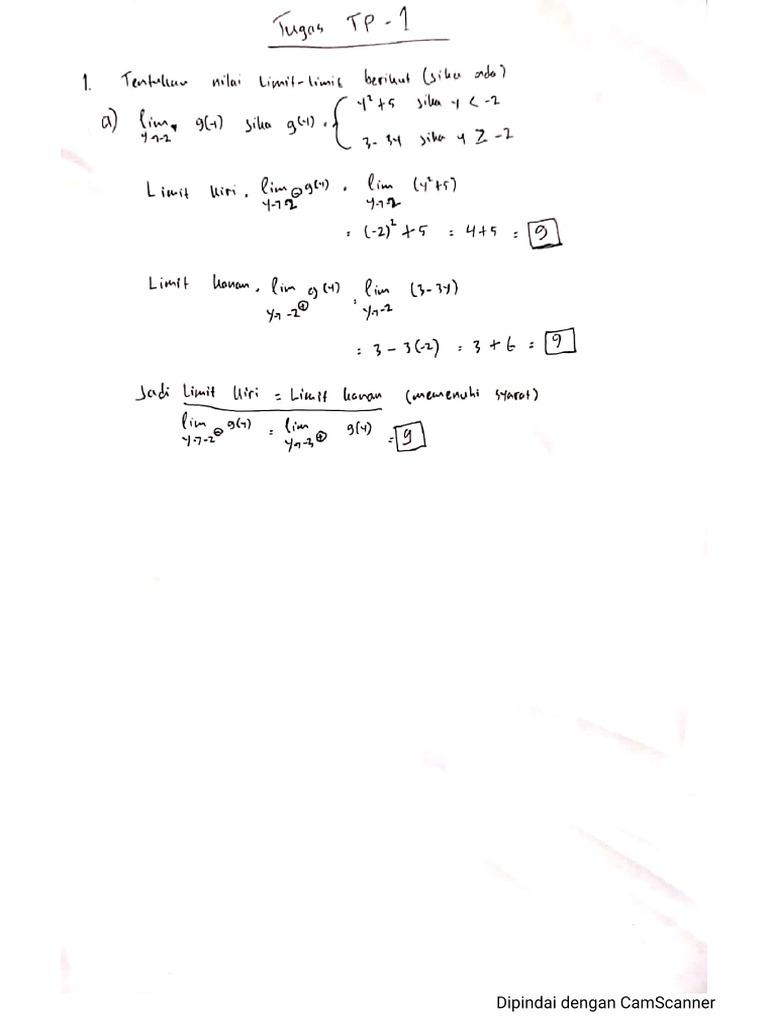 Tugas TP - 1
1. Tentukan nilai limit-limit berikut (jika ada)
a) lim y→-2 g(y) jika g(y) = { y² + 5 jika y < -2
3 - 3y jika y ≥ -2
Limit kiri = lim y→-2⁻ g(y) = lim y→-2 (y² + 5)
= (-2)² + 5 = 4 + 5 = 9
Limit kanan = lim y→-2⁺ g(y) = lim y→-2 (3 - 3y)
= 3 - 3(-2) = 3 + 6 = 9
Jadi Limit kiri = Limit kanan (memenuhi syarat)
lim y→-2⁻ g(y) = lim y→-3⁺ g(y) = 9
Dipindai dengan CamScanner